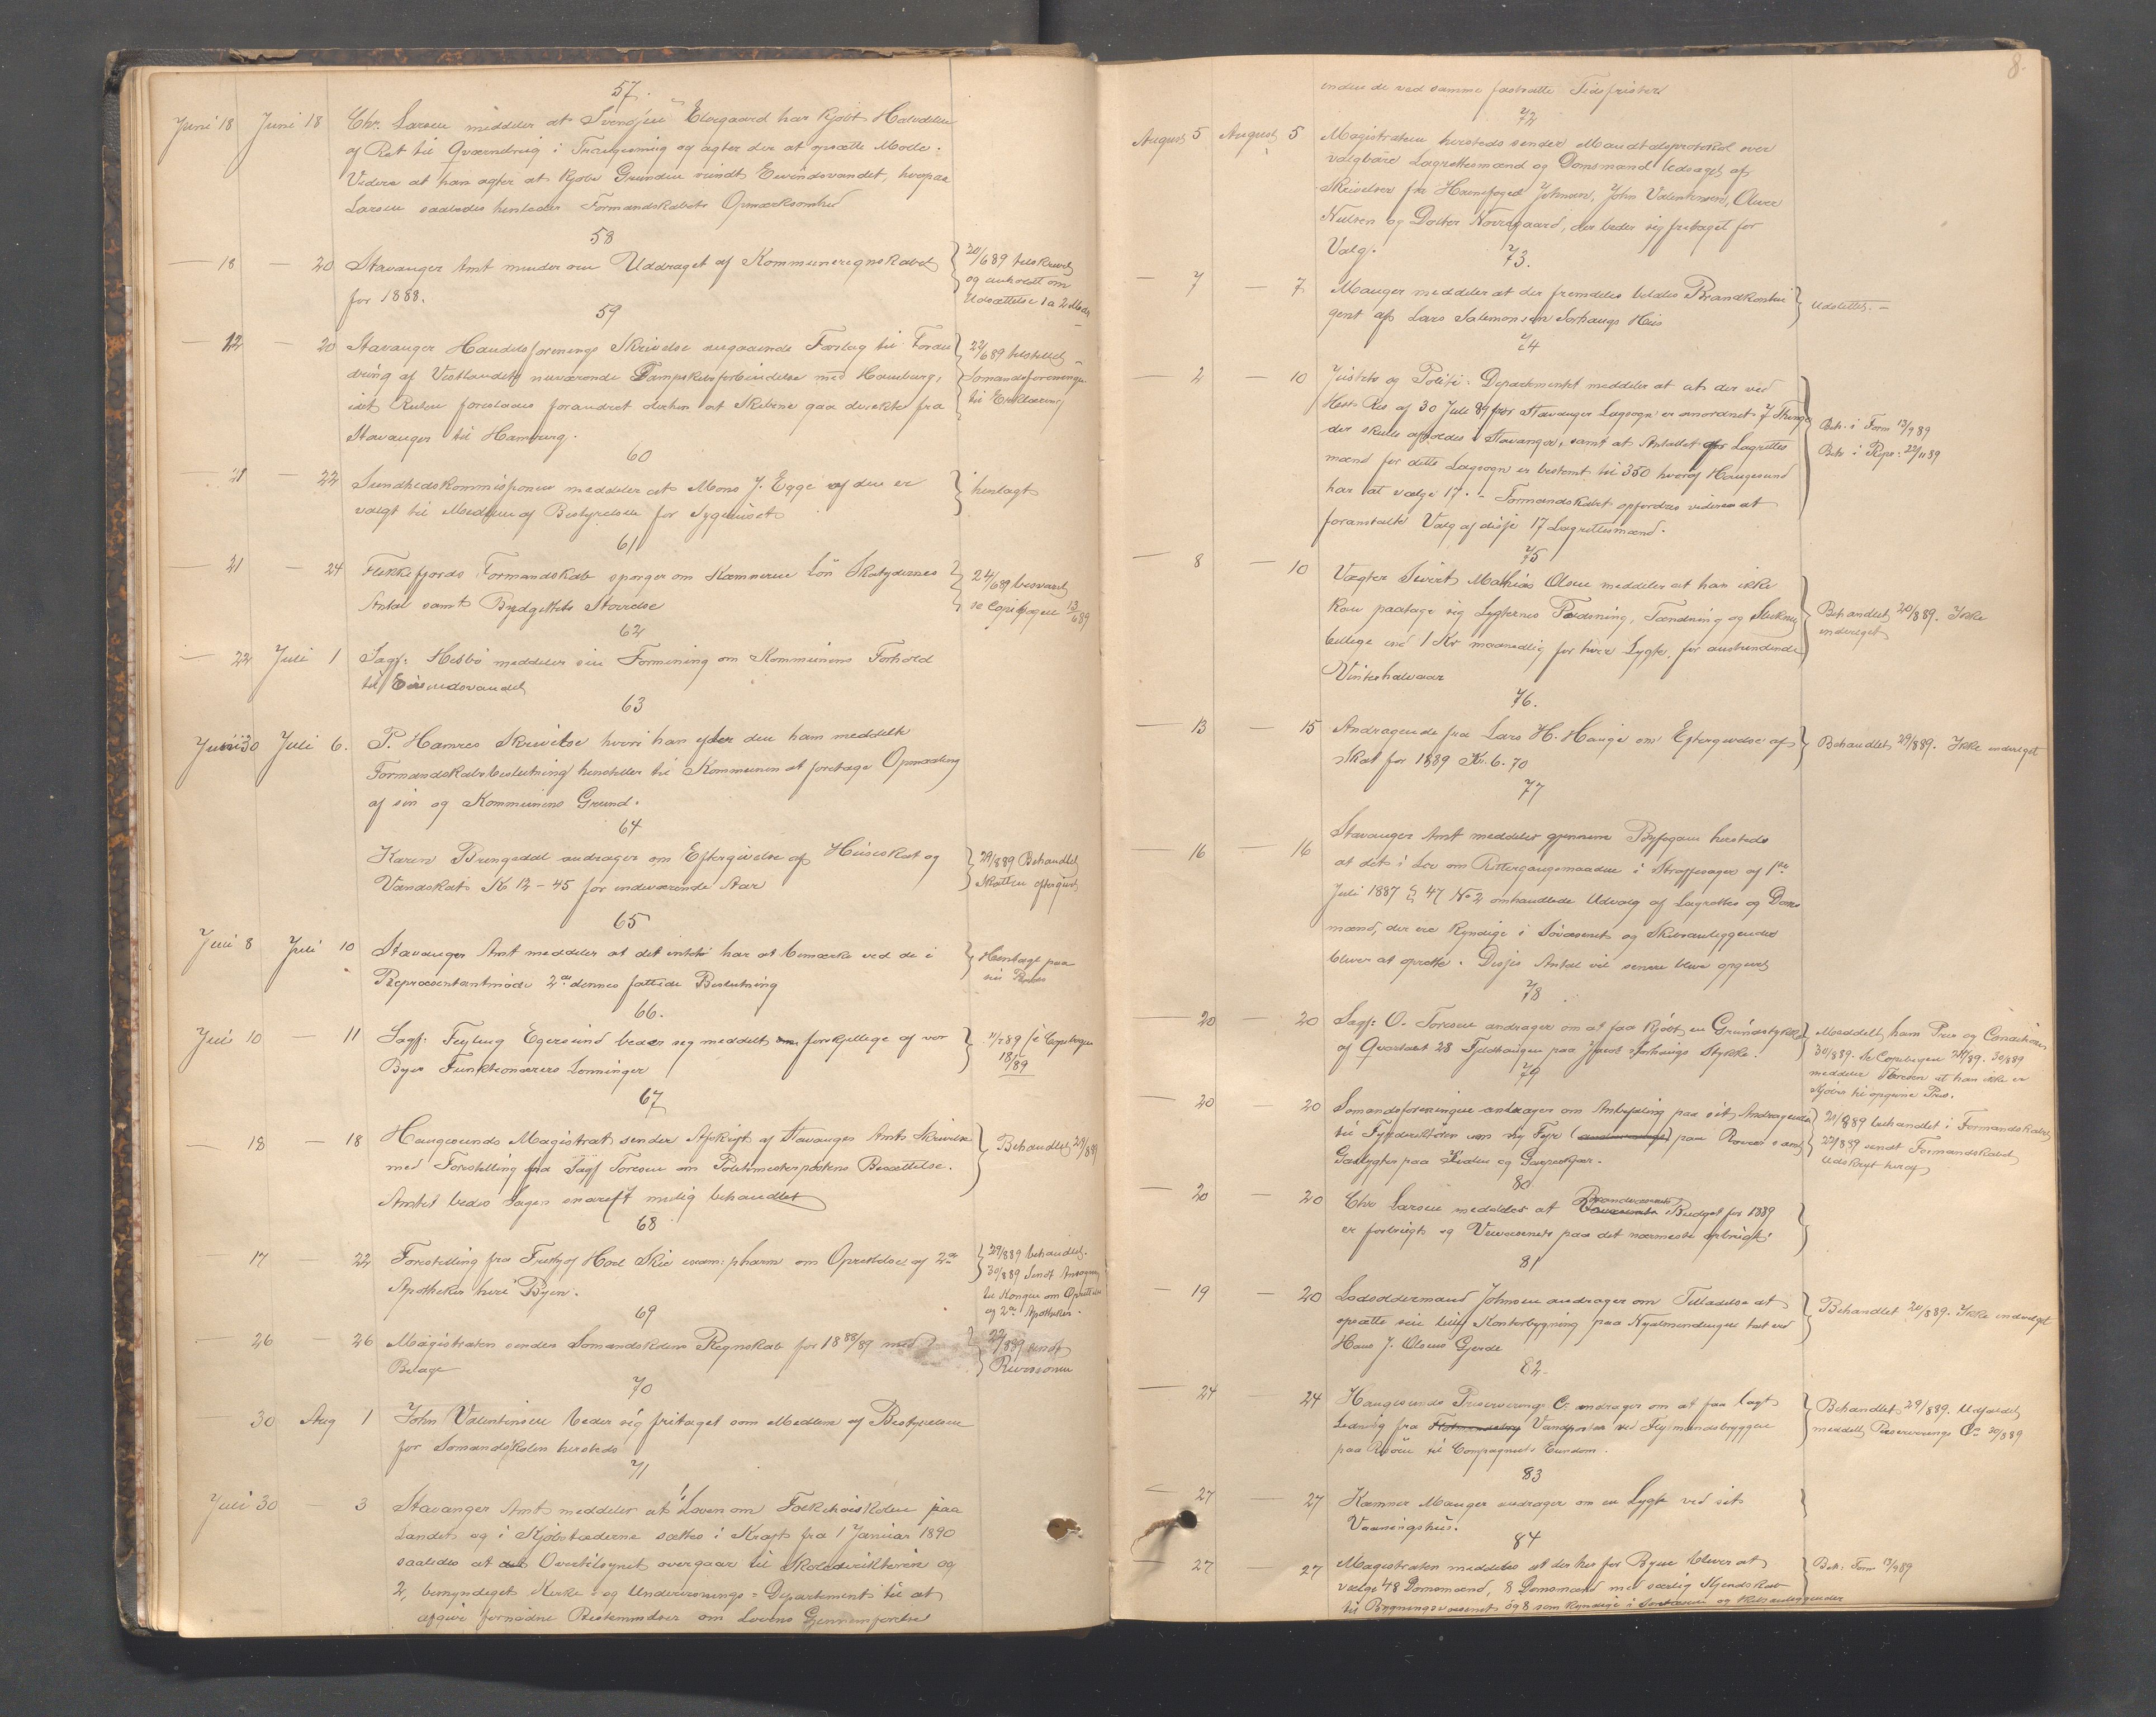 57.
Juni 18 Juni 18 Chr. Larsen meddeler at Svendsen Elvegaard har kjøbt Halvdelen
af Ret til Qværndrug i og agter der at opsætte Mølle.
Videre at han agter at kjøbe Grunden rundt Eivindsvandet, hvorpaa
Larsen saaledes henleder Formandskabets Opmærksomhed
58
— 18 — 20 Stavanger Amt minder om Uddraget af Kommuneregnskabet } 20/6 89 tilskrevet
for 1888. og anholdt om
Udsættelse 1 a 2 Mdr
59
— 12 — 20 Stavanger Handelsforenings Skrivelse angaaende Forslag til Foran } 22/6 89 tilstillet
dring af Vestlandets nuværende Dampskibsforbindelse med Hamburg, Sømandsforeningen
idet Ruten foreslaaes forandret derhen at Skibene gaa direkte fra til Erklæring
Stavanger til Hamburg.
60
— 21 — 22 Sundhedskommissionen meddeler at Mons J. Egge af den er } henlagt
valgt til Medlem af Bestyrelsen for Sygehuset
61
— 21 — 24 Flekkefjords Formandskab spørger om Kæmnerens Løn Skatydernes } 24/6 89 besvaret
Antal samt Budgettets Størrelse se Copibogen 13/6 89
62
— 22 Juli 1 Sagf. Hesbø meddeler sin Formening om Kommunens Forhold
til Eivindsvandet
63
Juni 30 Juli 6. P. Hamres Skrivelse hvori han efter den ham meddelte
Formandskabsbeslutning henstiller til Kommunen at foretage Opmaaling
af sin og Kommunens Grund.
64
Karen Bringedal andrager om Eftergivelse af Huseskat og } 29/8 89 Behandlet
Vandskat K 12 – 45 for indeværende Aar Skatten eftergivet
65
Juli 8 Juli 10 Stavanger Amt meddeler at det intet har at bemærke ved de i } Henlagt paa
Repræsentantmøde 2den dennes fattede Beslutning sin Plads
66.
Juli 10 — 11 Sagf. Feyling Egersund beder sig meddelt om forskjellige af vor } 11/7 89 se Copibogen
Byes Funktionærers Lønninger 18/7 89
67
— 18 — 18 Haugesunds Magistrat sender Afskrift af Stavanger Amts Skrivelse } Behandlet 29/8 89
med Forestilling fra Sagf Toresen om Politimesterpostens Besættelse.
Amtet beder Sagen snarest mulig behandlet
68
— 17 — 22 Forestilling fra Fritjof Hoel Skie exam: pharm om Oprettelse af 2det } 29/8 89 behandlet.
Apothek her i Byen. 30/8 89 Sendt Ansøgning
til Kongen om Oprettelse
af 2det Apothek.
69
— 26 — 26 Magistraten sender Sømandsskolens Regnskab for 1888/89 med } 22/8 89 sendt
Bilage Revisionen
70
— 30 Aug 1 John Valentinsen beder sig fritaget som Medlem af Bestyrelsen
for Sømandsskolen hersteds
71
Juli 30 — 3 Stavanger Amt meddeler at 1, Loven om Folkehøiskolen paa
Landet og i Kjøbstæderne sættes i Kraft fra 1 Januar 1890
saaledes at det Overtilsynet overgaar til Skoledirektøren og
2, bemyndiget Kirke- og Undervisnings-Departementet til at
afgive fornødne Bestemmelser om Lovens Gjennemførelse
8.
inden de ved samme fastsatte Tidsfrister
72
August 5 August 5 Magistraten hersteds sender Mandtalsprotokol over
valgbare Lagrettesmænd og Domsmænd ledsaget af
Skrivelser fra Havnefoged Johnsen, John Valentinsen, Oliver
Nielsen og Doctor Nørregaard, der beder sig fritaget for
Valg.
73.
— 7 — 7 Mauger meddeler at der fremdeles beldes Brandkontin } Udslettet. —
gent af Lars Salemonsen Sørhaugs Hus
74
— 2 — 10 Justits og Politi-Departementet meddeler at at der ved
Høst. Res af 30 Juli 89 for Stavanger Lagsogn er anordnet 7 Thinge } Beh. i Form 13/9 89
der skulle afholdes i Stavanger, samt at Antallet af Lagrettes Beh i Repr: 22/11 89
mænd for dette Lagsogn er bestemt til 350 hvoraf Haugesund
har at vælge 17. – Formandskabet opfordres videre at
foranstalte Valg af disse 17 Lagrettesmænd.
75
— 8 — 10 Vægter Sivert Mathias Olsen meddeler at han ikke
kan paatage sig Lygternes Pudsning, Tænding og Slukning } Behandlet 20/8 89. Ikke
billige end 1 Kr maanedlig for hver Lygte, for anstundende indvilget
Vinterhalvaar
76.
— 13 — 15 Andragende fra Lars H. Hauge om Eftergivelse af } Behandlet 29/8 89. Ikke indvilget
Skat for 1889 Kr. 6.70
77
— 16 — 16 Stavanger Amt meddeler gjennem Byfogden hersteds
at det i Lov om Rettergangsmaaden i Straffesager af 1ste
Juli 1887 § 47 No 2 omhandlede Udvalg af Lagrettes og Doms
mænd, der ere kyndige i Søvæsenet og Skibsanliggender
bliver at oprette. Disses Antal vil senere blive opgivet
78
— 20 — 20 Sagf: O. Toresen andrager om at faa kjøbt en Grundstykke } Meddelt ham Pris og Conditioner
af Qvartalet 28 Fjeldhaugen paa Jacob Sørhaugs Stykke. 30/8 89. Se Copibogen 29/8 89. 30/8 89
meddeler Toresen at han ikke er
Kjøber til opgivne Pris.
79
— 20 — 20 Sømandsforeningen andrager om Anbefaling paa sit Andragende } 20/8 89 behandlet i Formandskabet
til Fyrdirektøren om nyt Fyr paa Røvær samt 22/8 89 sendt Formandskabet
Gaslygter paa og Gasreskjær. Udskrift heraf
80
— 20 — 20 Chr Larsen meddeler at Brandvæsenets Budget for 1889 }
er forbrugt og Veivæsenets paa det nærmeste opbrugt.
81
— 19 — 20 Lodsoldermand Johnsen andrager om Tilladelse at } Behandlet 20/8 89. Ikke indvilget
opsætte sin lille Kontorbygning paa Nyalmendingen tæt ved
Hans J. Olsens Gjerde
82.
— 24 — 24 Haugesunds Preserverings Co. andrager om at faa lagt } Behandlet 29/8 89. Udfaldet
Ledning fra Vandposten ved Flyttmandsbryggen meddelt Preserverings Co 30/8 89
paa Risøen til Compagniets Eiendom.
83
— 27 — 27 Kæmner Mauger andrager om en Lygte ved sit }
Vaaningshus.
84
— 27 — 27 Magistraten meddeler at der her for Byen bliver at } Beh: Form 13/9 89
vælge 48 Domsmænd, 8 Domsmænd med særlig Kjendskab
til Bygningsvæsenet og 8 som kyndige i Søvæsenet og Skibsanliggender